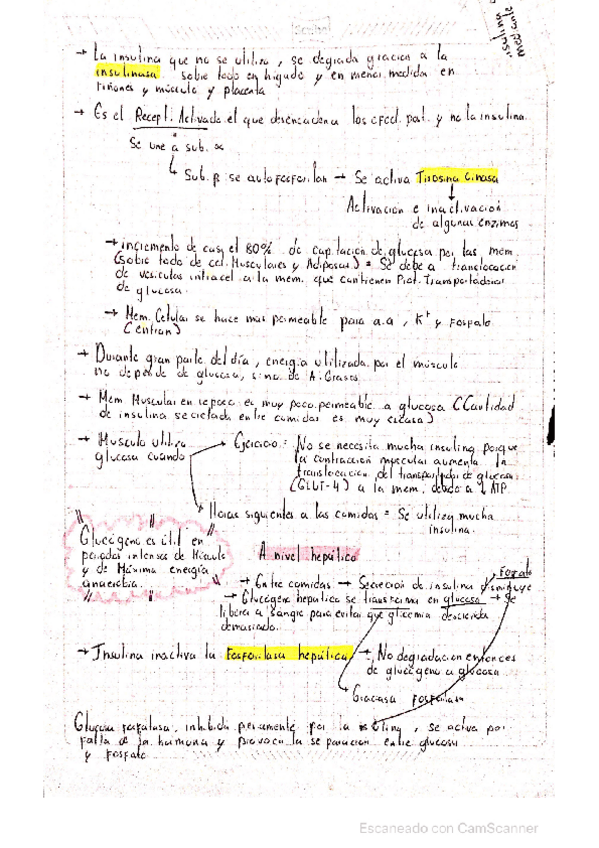 insulina
mediante
→ La insulina que no se utiliza, se degrada gracias a la
insulinasa sobre todo en hígado y en menor medida en
riñones y músculo y placenta
→ Es el Recept. Activado el que desencadena los efect. pat. y no la insulina.
Se une a sub. α
Sub. β se autofosforilan → Se activa Tirosina Cinasa
Activación e inactivación
de algunas enzimas
→ incremento de casi el 80% de captación de glucosa por las mem.
(sobre todo de cel. Musculares y Adiposas) = Se debe a translocación
de vesículas intracel a la mem. que contienen Prot. Transportadoras
de glucosa.
→ Mem. Celular se hace mas permeable para a.a, K+ y Fosfato
(entran)
→ Durante gran parte del día, energía utilizada por el músculo
no depende de glucosa, sino de A. Grasos.
→ Mem Muscular en reposo es muy poco permeable a glucosa (Cantidad
de insulina secretada entre comidas es muy escasa)
→ Musculo utiliza
glucosa cuando
→ Ejercicio = No se necesita mucha insulina porque
la contracción muscular aumenta la
translocación del transportador de glucosa
(GLUT-4) a la mem. debido a ↓ ATP
Horas siguientes a las comidas = Se utiliza mucha
insulina.
Glucógeno es útil en
periodos intensos de
y de Máxima energía
anaerobia.
A nivel hepático
→ Entre comidas → Secreción de insulina disminuye
→ Glucógeno hepático se transforma en glucosa → Se
libera a sangre para evitar que glicemia descienda
demasiado.
→ Insulina inactiva la Fosforilasa hepática → No degradación entonces
de glucógeno a glucosa
Glucosa fosfatasa, inhibida por la insulina, se activa por
falta de la hormona y provoca la separación entre glucosa
y fosfato
Escaneado con CamScanner